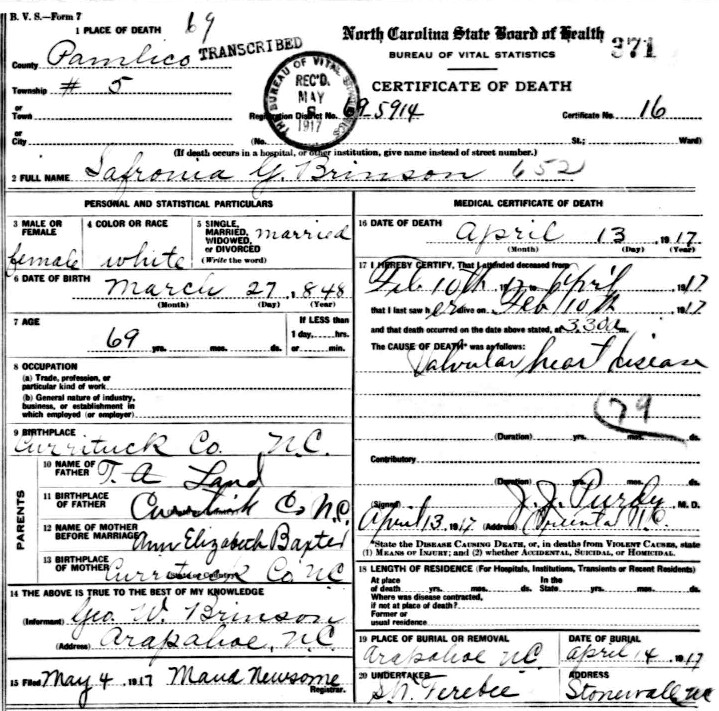 B. V. S.—Form 7
69
1 PLACE OF DEATH
North Carolina State Board of Health
371
BUREAU OF VITAL STATISTICS
County Pamlico
TRANSCRIBED
BUREAU OF VITAL STATISTICS
REC'D.
MAY
1917
CERTIFICATE OF DEATH
Township # 5
or
Town
Registration District No. 69-5914
Certificate No. 16
or
City
(No.
St.;
Ward)
(If death occurs in a hospital, or other institution, give name instead of street number.)
2 FULL NAME Lafronia G. Brinson 652
PERSONAL AND STATISTICAL PARTICULARS
3 MALE OR FEMALE
female
4 COLOR OR RACE
white
5 SINGLE, MARRIED, WIDOWED, or DIVORCED
(Write the word)
married
6 DATE OF BIRTH March 27, 1848
(Month) (Day) (Year)
7 AGE
69 yrs. mos. ds.
If LESS than
1 day, hrs.
or min.
8 OCCUPATION
(a) Trade, profession, or
particular kind of work
(b) General nature of industry,
business, or establishment in
which employed (or employer)
9 BIRTHPLACE
Currituck Co N.C.
PARENTS
10 NAME OF FATHER T. A Land
11 BIRTHPLACE OF FATHER Currituck Co N.C.
12 NAME OF MOTHER BEFORE MARRIAGE Ann Elizabeth Baxter
13 BIRTHPLACE OF MOTHER Currituck Co NC
14 THE ABOVE IS TRUE TO THE BEST OF MY KNOWLEDGE
(Informant) Geo W. Brinson
(Address) Arapahoe, N.C.
15 Filed May 4, 1917 Maud Newsome
Registrar.
MEDICAL CERTIFICATE OF DEATH
16 DATE OF DEATH
April 13 1917
(Month) (Day) (Year)
17 I HEREBY CERTIFY, That I attended deceased from
Feb 10th April 1917
that I last saw her alive on Feb 10th 1917
and that death occurred on the date above stated, at 3.30 a m.
The CAUSE OF DEATH* was as follows:
Valvular heart disease
79
(Duration) yrs. mos. ds.
Contributory
(Duration) yrs. mos. ds.
(Signed) J. J. Purdy, M. D.
April 13, 1917 (Address) Oriental N.C.
*State the DISEASE CAUSING DEATH, or, in deaths from VIOLENT CAUSES, state
(1) MEANS OF INJURY; and (2) whether ACCIDENTAL, SUICIDAL, or HOMICIDAL.
18 LENGTH OF RESIDENCE (For Hospitals, Institutions, Transients or Recent Residents)
At place
of death yrs. mos. ds.
In the
State yrs. mos. ds.
Where was disease contracted,
if not at place of death?
Former or
usual residence
19 PLACE OF BURIAL OR REMOVAL
Arapahoe NC
DATE OF BURIAL
April 14, 1917
20 UNDERTAKER
Ferebee
ADDRESS
Stonewall NC